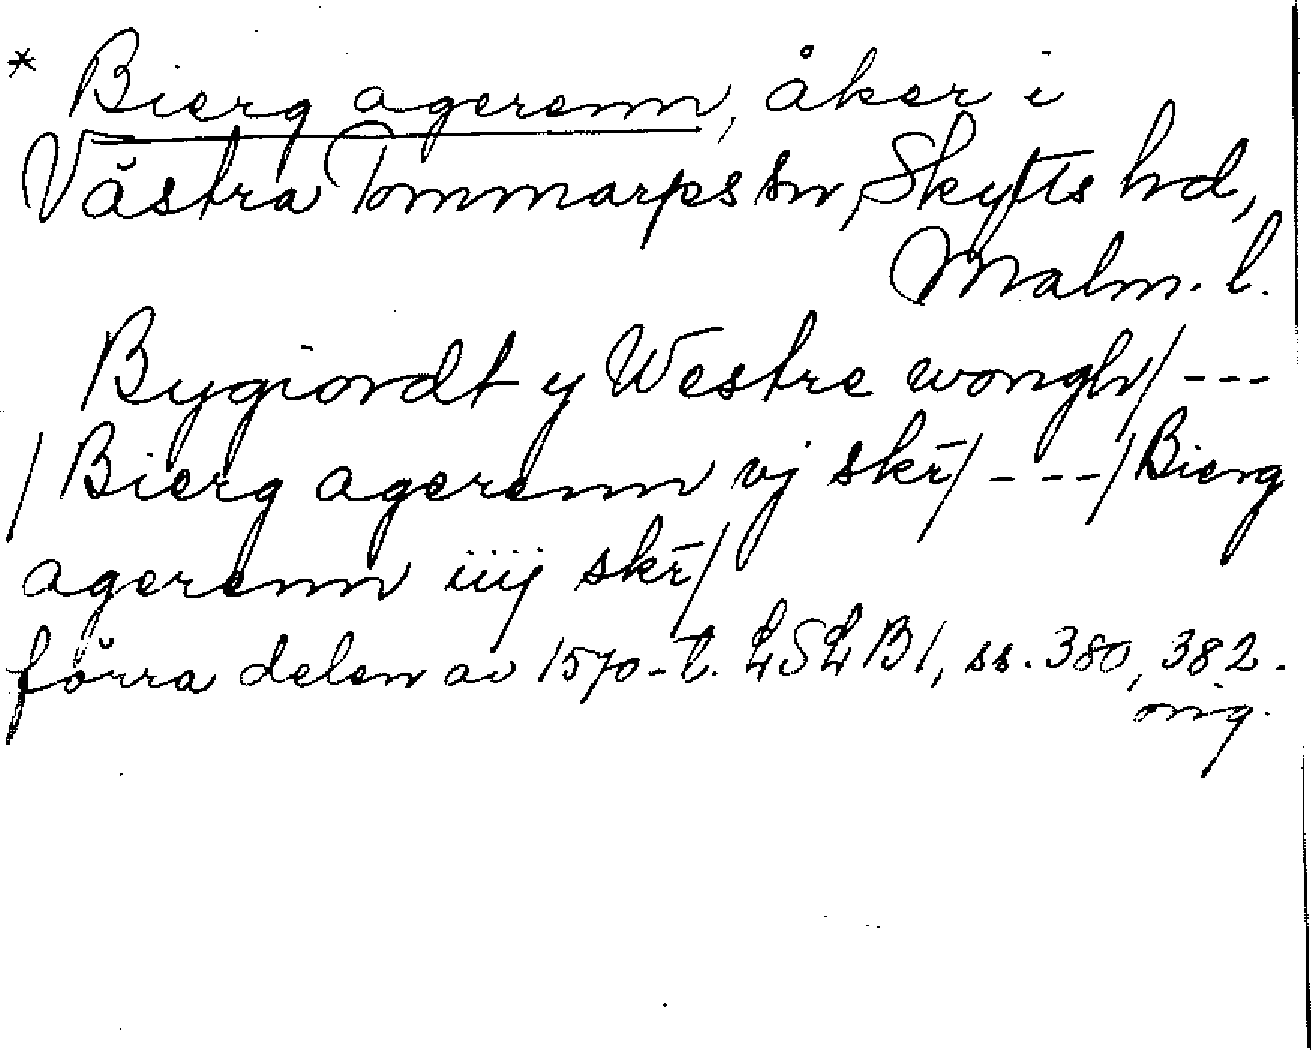 * Bierg agerenn, åker i
Västra Tommarps sn, Skytts hd,
Malm. l.
Bygiordt y Westre wongh/ ---
/ Bierg agerenn vj skr̄/ - --/ Bierg
agerenn iiij skr̄/
förra delen av 1570-t. LSLB1, ss. 380, 382.
orig.